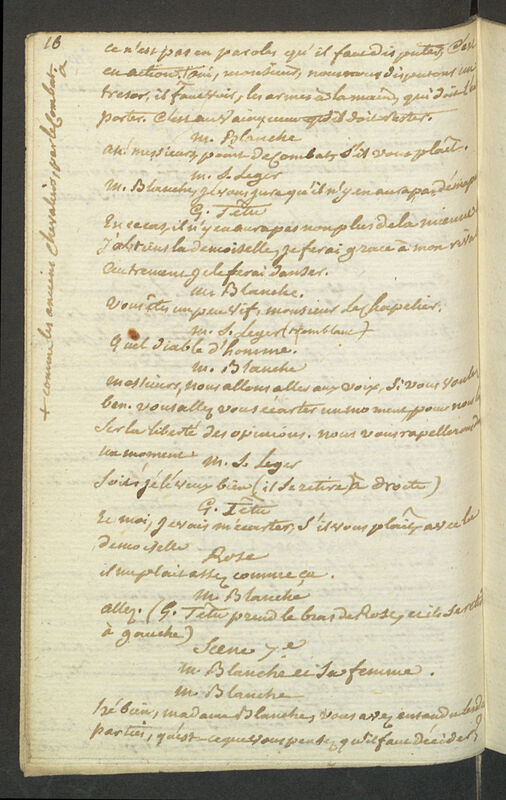 16
ce n'est pas en paroles qu'il faut disputer, c'est
en action. oui, monsieur, nous nous disputons un
tresor, il faut voir, les armes à la main, qui doit l'em
porter. C'est au vainqueur qu'il doit rester.
m. Blanche
ah! messieurs, point de combats s'il vous plaît.
m. S. Leger
m. Blanche, je vous jure qu'il n'y en aura pas de ma pa
G. Têtu
En ce cas, il n'y en aura pas non plus de la mienne
j'obtiens la demoiselle, je ferai grace à mon rival
autrement je le ferai danser.
m. Blanche.
Vous êtes un peu vif, monsieur le Chapelier.
m. S. Leger (tremblant)
Quel diable d'homme.
m. Blanche
messieurs, nous allons aller aux voix, si vous voulez
ben. vous allez vous écarter un moment, pour nous lais
ser la liberté des opinions. nous vous rapellerons dans
un moment
m. S. Leger
Soit, je le veux bien (il se retire à droite)
G. Têtu
Et moi, je vais m'écarter, s'il vous plaît, avec la
demoiselle
Rose
il me plait assez comme ça.
m. Blanche
allez. (G. Têtu prend le bras de Rose, et ils se retir
à gauche)
Scene 7.e
m. Blanche et sa femme.
m. Blanche
hé bien, madame Blanche, vous avez entendu les deux
parties, qu'est-ce que vous pensez qu'il faut décider?
+ comme les anciens chevaliers, par le combat,
à